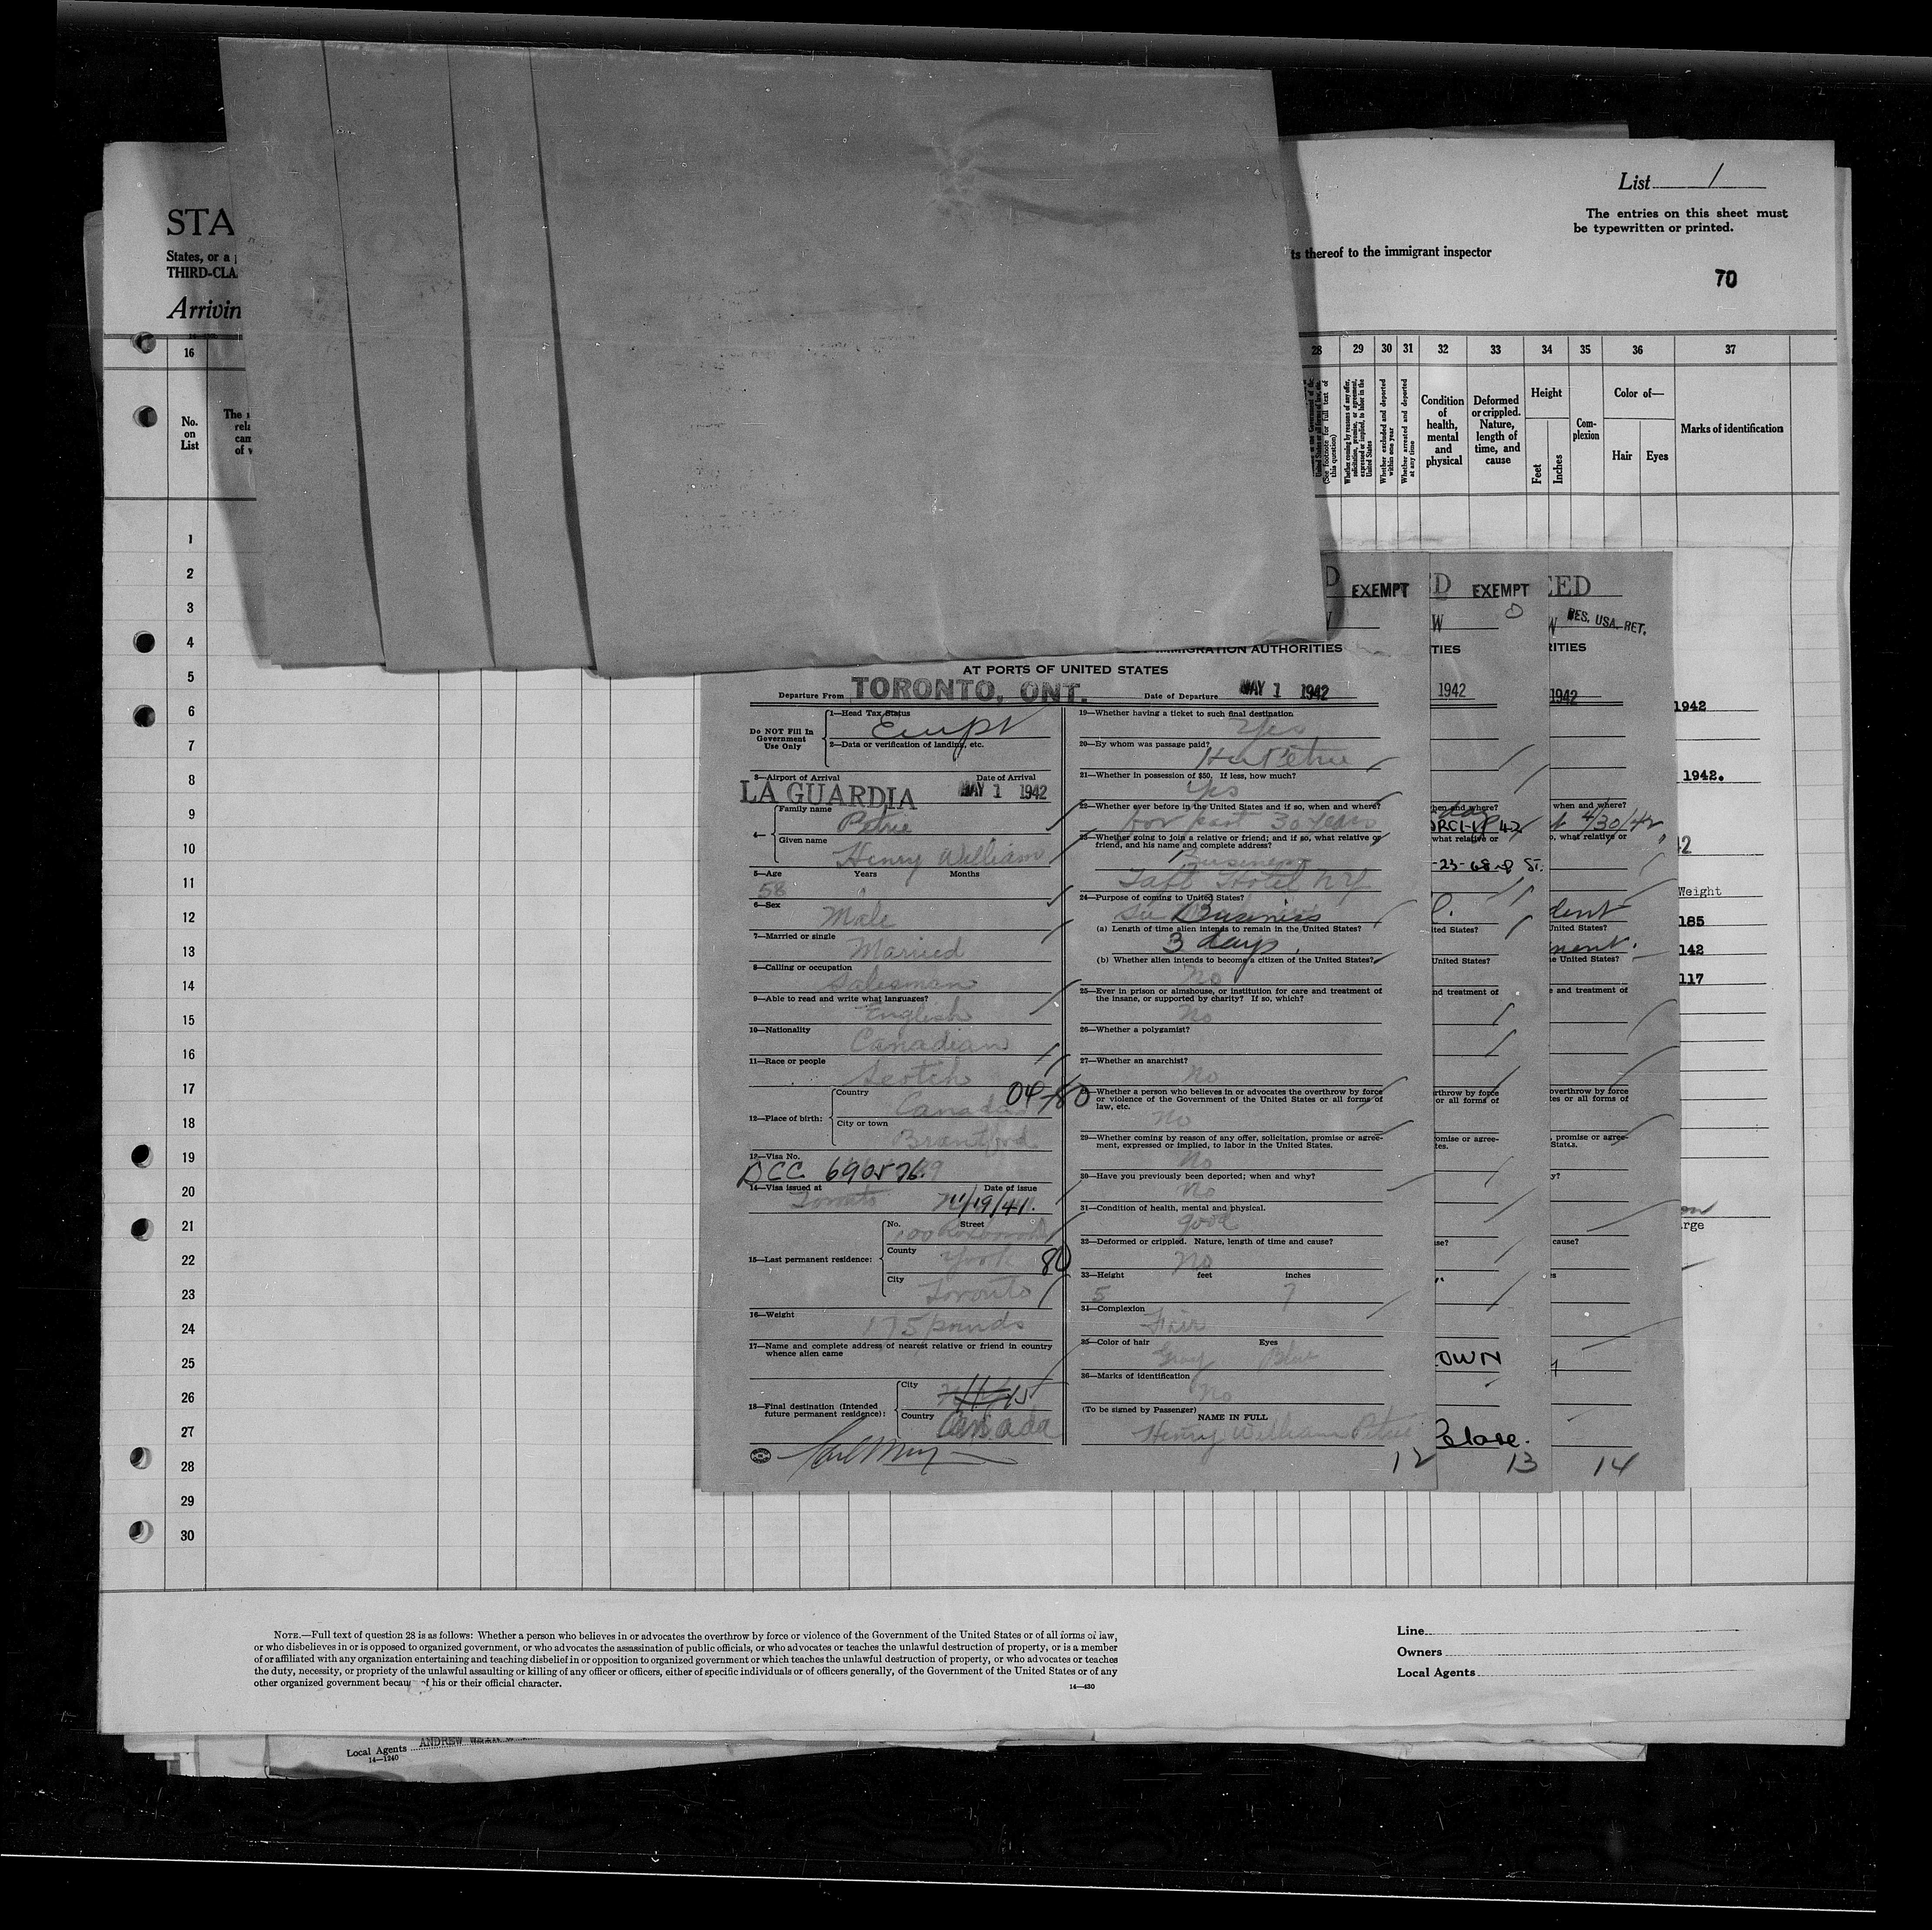 List 1
The entries on this sheet must
be typewritten or printed.
STA
States, or a
THIRD-CLA
ts thereof to the immigrant inspector
70
Arrivin
16
28 29 30 31 32 33 34 35 36 37
No.
on
List
The
rela
cam
of w
this question)
(See footnote for full text of
Whether coming by reasons of any offer,
solicitation, promise, or agreement,
expressed or implied, to labor in the
United States
Whether excluded and deported
within one year
Whether arrested and deported
at any time
Condition
of
health,
mental
and
physical
Deformed
or crippled.
Nature,
length of
time, and
cause
Height
Feet
Inches
Com-
plexion
Color of—
Hair Eyes
Marks of identification
1
2
3
4
5
6
7
8
9
10
11
12
13
14
15
16
17
18
19
20
21
22
23
24
25
26
27
28
29
30
D EXEMPT
IMMIGRATION AUTHORITIES
AT PORTS OF UNITED STATES
Departure From TORONTO, ONT. Date of Departure MAY 1 1942
Do NOT Fill In
Government
Use Only
1—Head Tax Status
2—Data or verification of landing, etc.
3—Airport of Arrival Date of Arrival
LA GUARDIA MAY 1 1942
4— Family name
Petrie
Given name
Henry William
5—Age Years Months
58
6—Sex
Male
7—Married or single
Married
8—Calling or occupation
Salesman
9—Able to read and write what languages?
English
10—Nationality
Canadian
11—Race or people
Scotch
04-80
12—Place of birth:
Country
Canada
City or town
Brantford
13—Visa No.
DCC 690576
14—Visa issued at Date of issue
Toronto 11/19/41.
15—Last permanent residence:
No. Street
County
York 80
City
Toronto
16—Weight
175 pounds
17—Name and complete address of nearest relative or friend in country
whence alien came
18—Final destination (Intended
future permanent residence):
City
Country
Canada
19—Whether having a ticket to such final destination
Yes
20—By whom was passage paid?
21—Whether in possession of $50. If less, how much?
Yes
22—Whether ever before in the United States and if so, when and where?
for past 30 years
23—Whether going to join a relative or friend; and if so, what relative or
friend, and his name and complete address?
Business
Taft Hotel NY
24—Purpose of coming to United States?
Business
(a) Length of time alien intends to remain in the United States?
3 days.
(b) Whether alien intends to become a citizen of the United States?
No
25—Ever in prison or almshouse, or institution for care and treatment of
the insane, or supported by charity? If so, which?
No
26—Whether a polygamist?
27—Whether an anarchist?
No
28—Whether a person who believes in or advocates the overthrow by force
or violence of the Government of the United States or all forms of
law, etc.
No
29—Whether coming by reason of any offer, solicitation, promise or agree-
ment, expressed or implied, to labor in the United States.
No
30—Have you previously been deported; when and why?
No
31—Condition of health, mental and physical.
good
32—Deformed or crippled. Nature, length of time and cause?
No
33—Height feet inches
5 7
34—Complexion
Fair
35—Color of hair Eyes
Gray Blue
36—Marks of identification
No
(To be signed by Passenger)
NAME IN FULL
Henry William Petrie
12
D EXEMPT
W
TIES
1942
hen and where?
what relative or
-23-68 ST.
ited States?
United States?
nd treatment of
rthrow by force
or all forms of
omise or agree-
tes.
se?
OWN
13
EED
RES. USA. RET.
RITIES
1942
when and where?
4/30/42
o, what relative or
dent
United States?
nent.
e United States?
e and treatment of
overthrow by force
tes or all forms of
, promise or agree-
States.
y?
cause?
14
1942
1942.
42
Weight
185
142
117
rge
NOTE.—Full text of question 28 is as follows: Whether a person who believes in or advocates the overthrow by force or violence of the Government of the United States or of all forms of law,
or who disbelieves in or is opposed to organized government, or who advocates the assassination of public officials, or who advocates or teaches the unlawful destruction of property, or is a member
of or affiliated with any organization entertaining and teaching disbelief in or opposition to organized government or which teaches the unlawful destruction of property, or who advocates or teaches
the duty, necessity, or propriety of the unlawful assaulting or killing of any officer or officers, either of specific individuals or of officers generally, of the Government of the United States or of any
other organized government becau of his or their official character.
14—430
Line
Owners
Local Agents
Local Agents ANDREW
14—1240